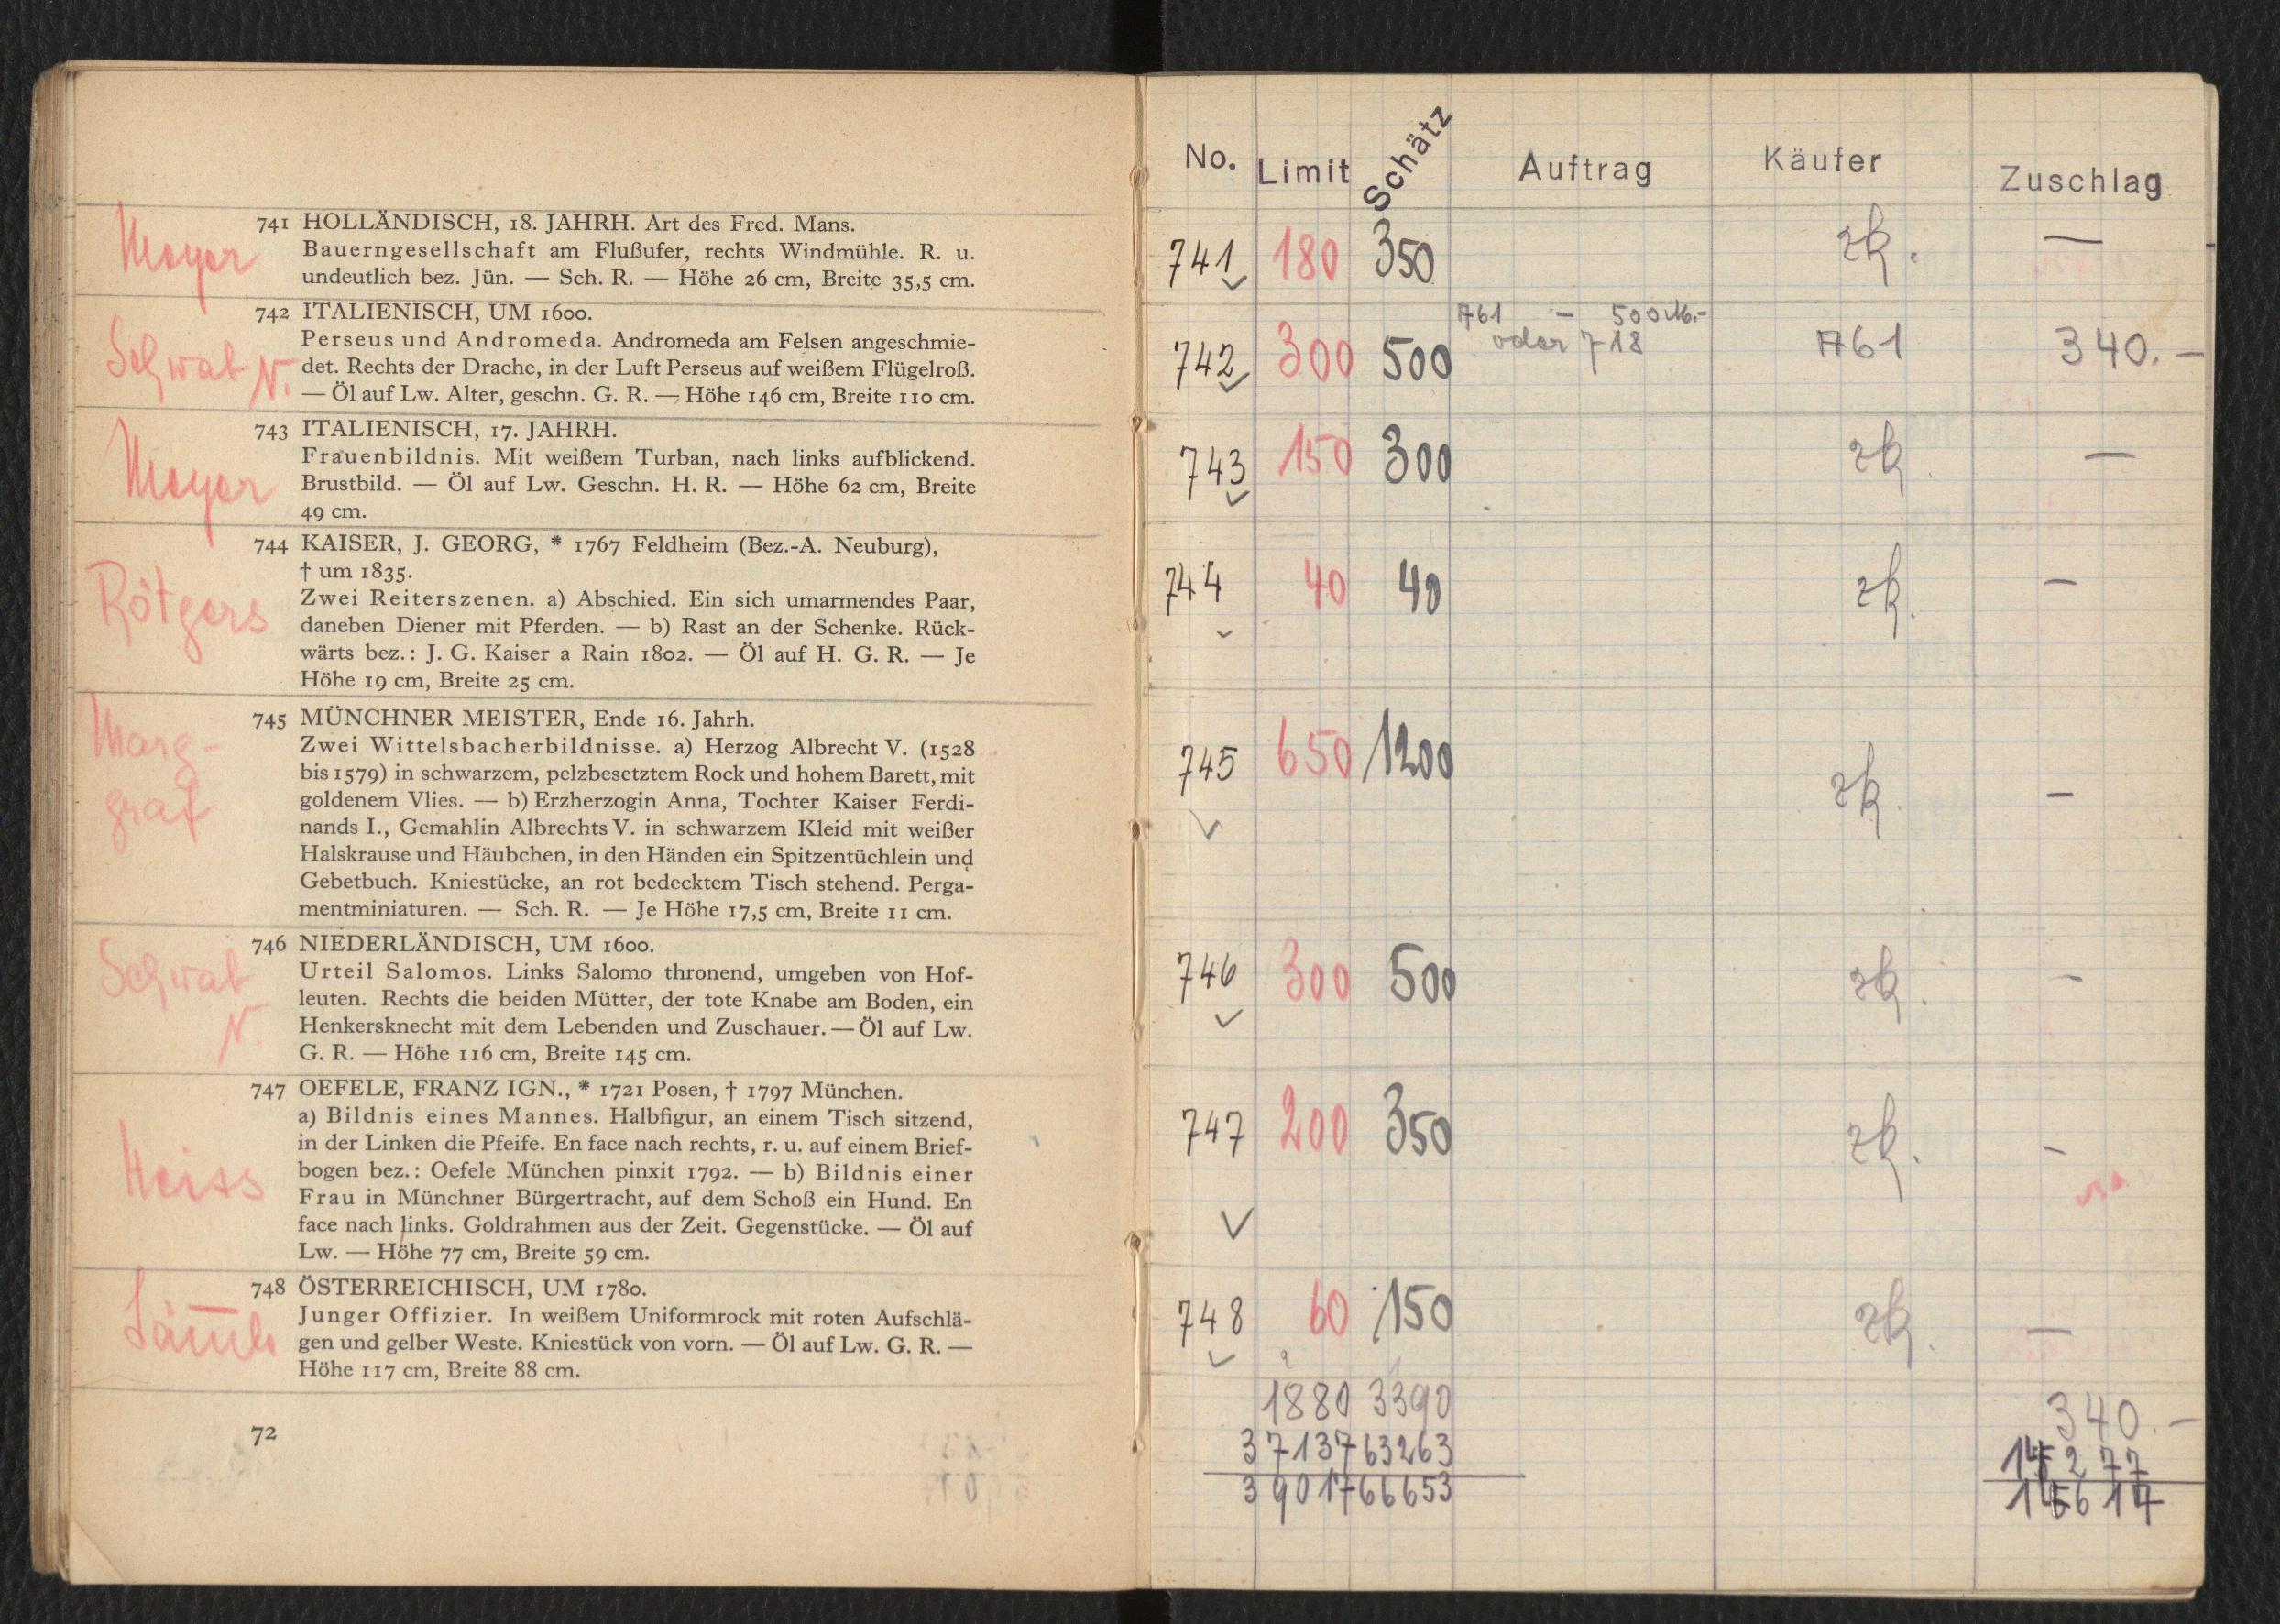 Meyer
741 HOLLÄNDISCH, 18. JAHRH. Art des Fred. Mans.
Bauerngesellschaft am Flußufer, rechts Windmühle. R. u.
undeutlich bez. Jün. — Sch. R. — Höhe 26 cm, Breite 35,5 cm.
Schwab N.
742 ITALIENISCH, UM 1600.
Perseus und Andromeda. Andromeda am Felsen angeschmie-
det. Rechts der Drache, in der Luft Perseus auf weißem Flügelroß.
— Öl auf Lw. Alter, geschn. G. R. — Höhe 146 cm, Breite 110 cm.
Meyer
743 ITALIENISCH, 17. JAHRH.
Frauenbildnis. Mit weißem Turban, nach links aufblickend.
Brustbild. — Öl auf Lw. Geschn. H. R. — Höhe 62 cm, Breite
49 cm.
Rötgers
744 KAISER, J. GEORG, * 1767 Feldheim (Bez.-A. Neuburg),
† um 1835.
Zwei Reiterszenen. a) Abschied. Ein sich umarmendes Paar,
daneben Diener mit Pferden. — b) Rast an der Schenke. Rück-
wärts bez.: J. G. Kaiser a Rain 1802. — Öl auf H. G. R. — Je
Höhe 19 cm, Breite 25 cm.
Marg-
graf
745 MÜNCHNER MEISTER, Ende 16. Jahrh.
Zwei Wittelsbacherbildnisse. a) Herzog Albrecht V. (1528
bis 1579) in schwarzem, pelzbesetztem Rock und hohem Barett, mit
goldenem Vlies. — b) Erzherzogin Anna, Tochter Kaiser Ferdi-
nands I., Gemahlin Albrechts V. in schwarzem Kleid mit weißer
Halskrause und Häubchen, in den Händen ein Spitzentüchlein und
Gebetbuch. Kniestücke, an rot bedecktem Tisch stehend. Perga-
mentminiaturen. — Sch. R. — Je Höhe 17,5 cm, Breite 11 cm.
Schwab
N.
746 NIEDERLÄNDISCH, UM 1600.
Urteil Salomos. Links Salomo thronend, umgeben von Hof-
leuten. Rechts die beiden Mütter, der tote Knabe am Boden, ein
Henkersknecht mit dem Lebenden und Zuschauer. — Öl auf Lw.
G. R. — Höhe 116 cm, Breite 145 cm.
Heiss
747 OEFELE, FRANZ IGN., * 1721 Posen, † 1797 München.
a) Bildnis eines Mannes. Halbfigur, an einem Tisch sitzend,
in der Linken die Pfeife. En face nach rechts, r. u. auf einem Brief-
bogen bez.: Oefele München pinxit 1792. — b) Bildnis einer
Frau in Münchner Bürgertracht, auf dem Schoß ein Hund. En
face nach links. Goldrahmen aus der Zeit. Gegenstücke. — Öl auf
Lw. — Höhe 77 cm, Breite 59 cm.
748 ÖSTERREICHISCH, UM 1780.
Junger Offizier. In weißem Uniformrock mit roten Aufschlä-
gen und gelber Weste. Kniestück von vorn. — Öl auf Lw. G. R. —
Höhe 117 cm, Breite 88 cm.
72
No. Limit Schätz Auftrag Käufer Zuschlag
741 180 350 zk. —
761 — 500 M.-
oder 718
742 300 500 761 340.—
743 150 300 zk. —
744 40 40 zk. —
745 650 1200 zk. —
746 300 500 zk. —
747 200 350 zk. —
748 60 150 zk. —
1880 3390 340.—
37137 63263
39017 66653